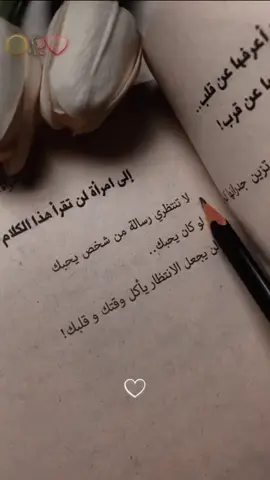 أعرفها عن قلب..
ها عن قرب!
تزين جدرانها
إلى امرأة لن تقرأ هذا الكلام
لا تنتظري رسالة من شخص يحبك
لو كان يحبك..
لن يجعل الانتظار يأكل وقتك و قلبك!